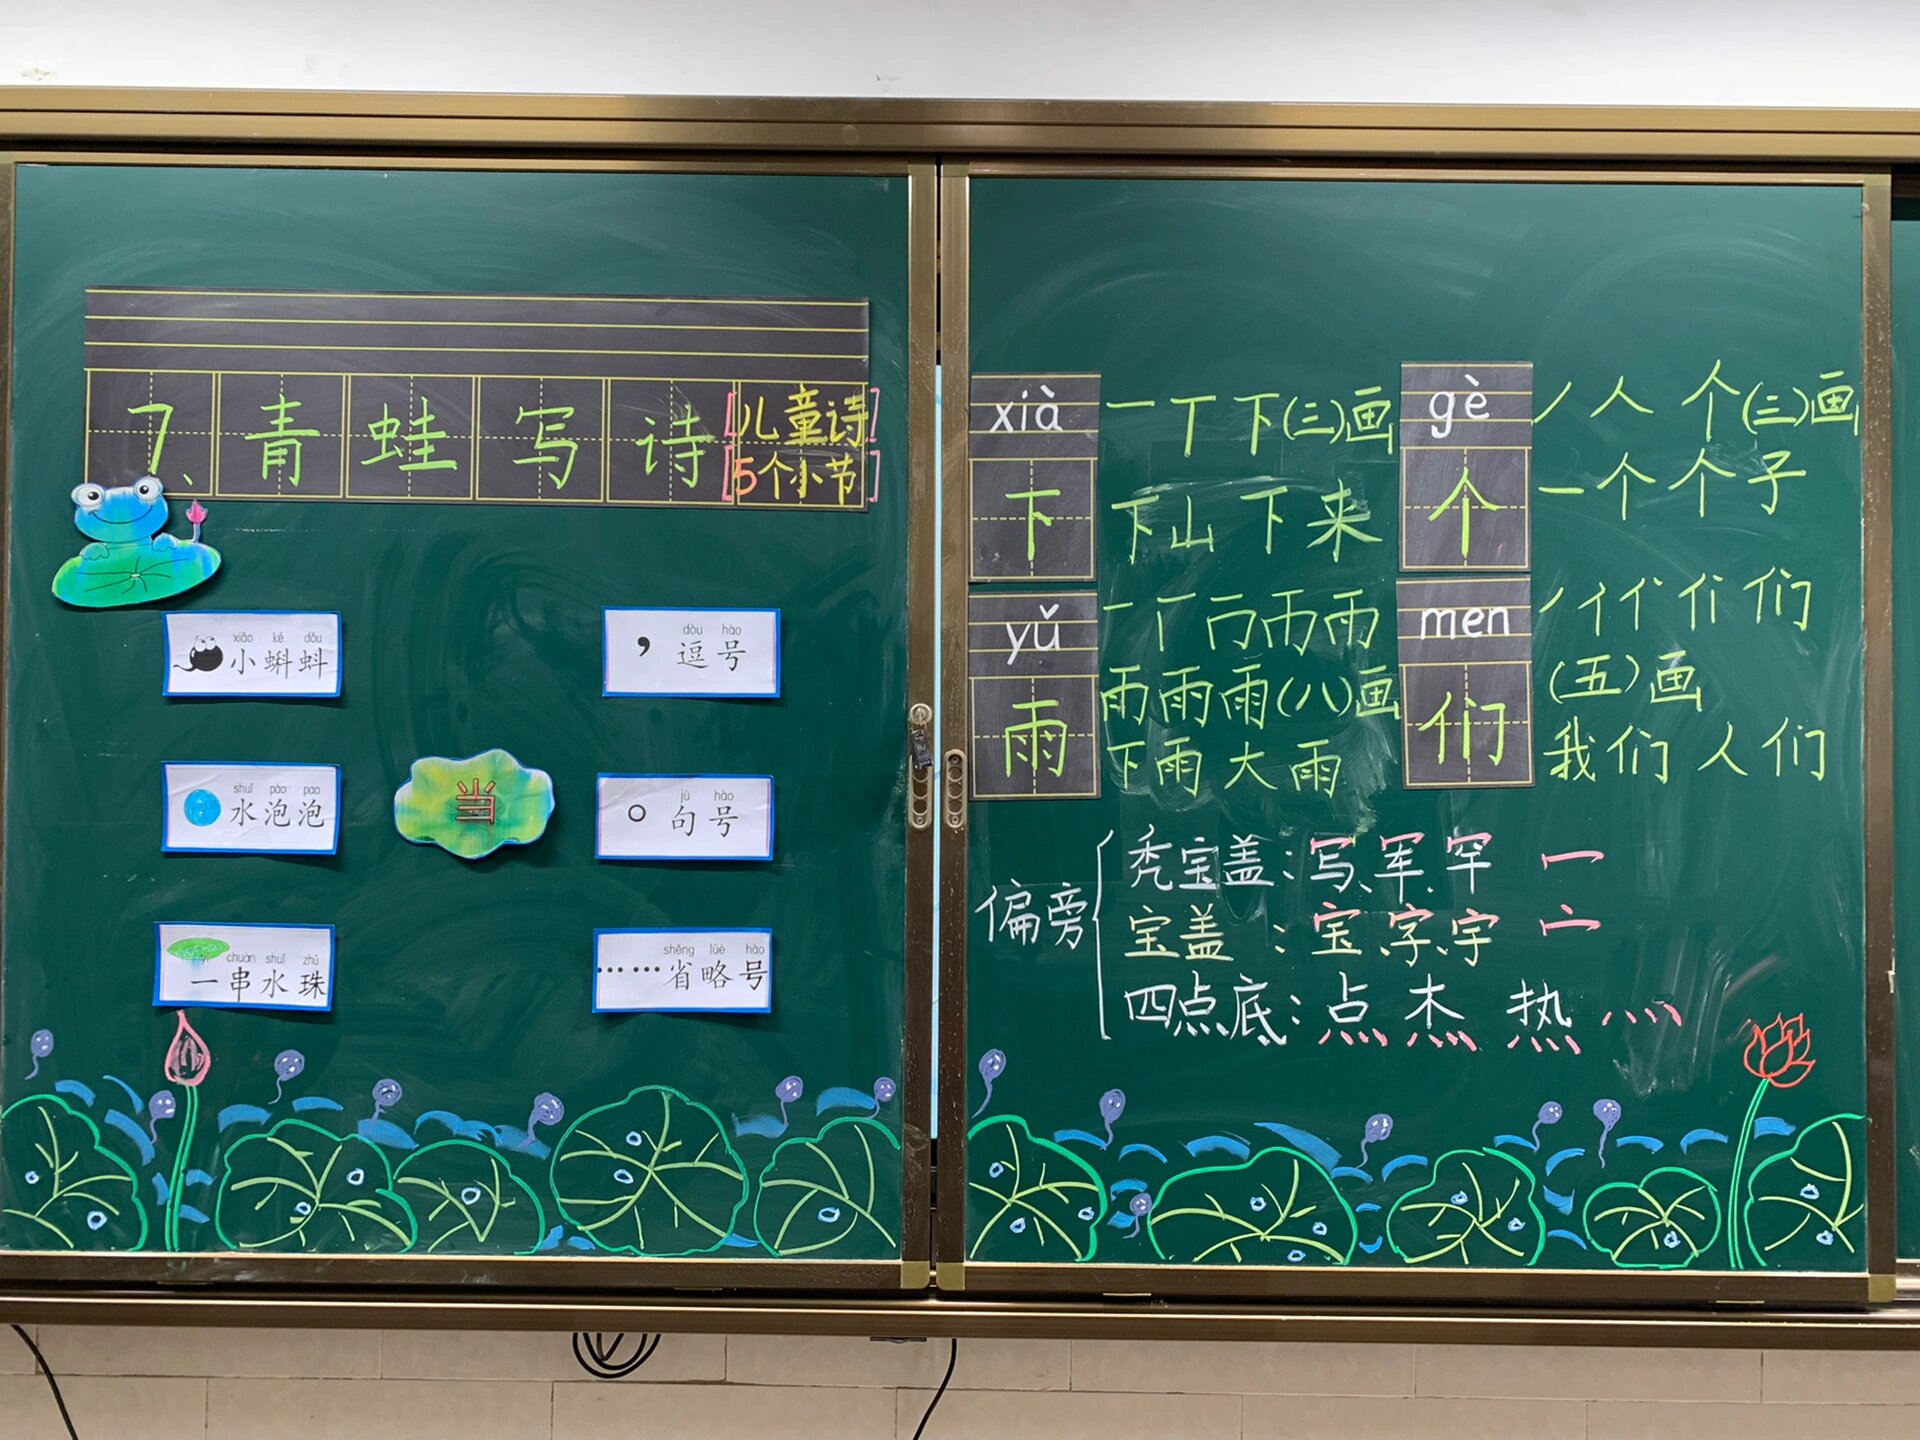 7、青蛙写诗
[儿童诗]
[5个小节]
xiǎo kē dǒu
小蝌蚪
dòu hào
， 逗号
shuǐ pào pao
水泡泡
当
jù hào
。 句号
yí chuàn shuǐ zhū
一串水珠
shěng lüè hào
……省略号
xià
下
一丅下(三)画
下山 下来
gè
个
丿人个(三)画
一个 个子
yǔ
雨
雨雨雨(八)画
下雨 大雨
men
们
(五)画
我们 人们
偏旁
秃宝盖：写、军、罕 冖
宝盖：宝、字、宇 宀
四点底：点 杰 热 灬